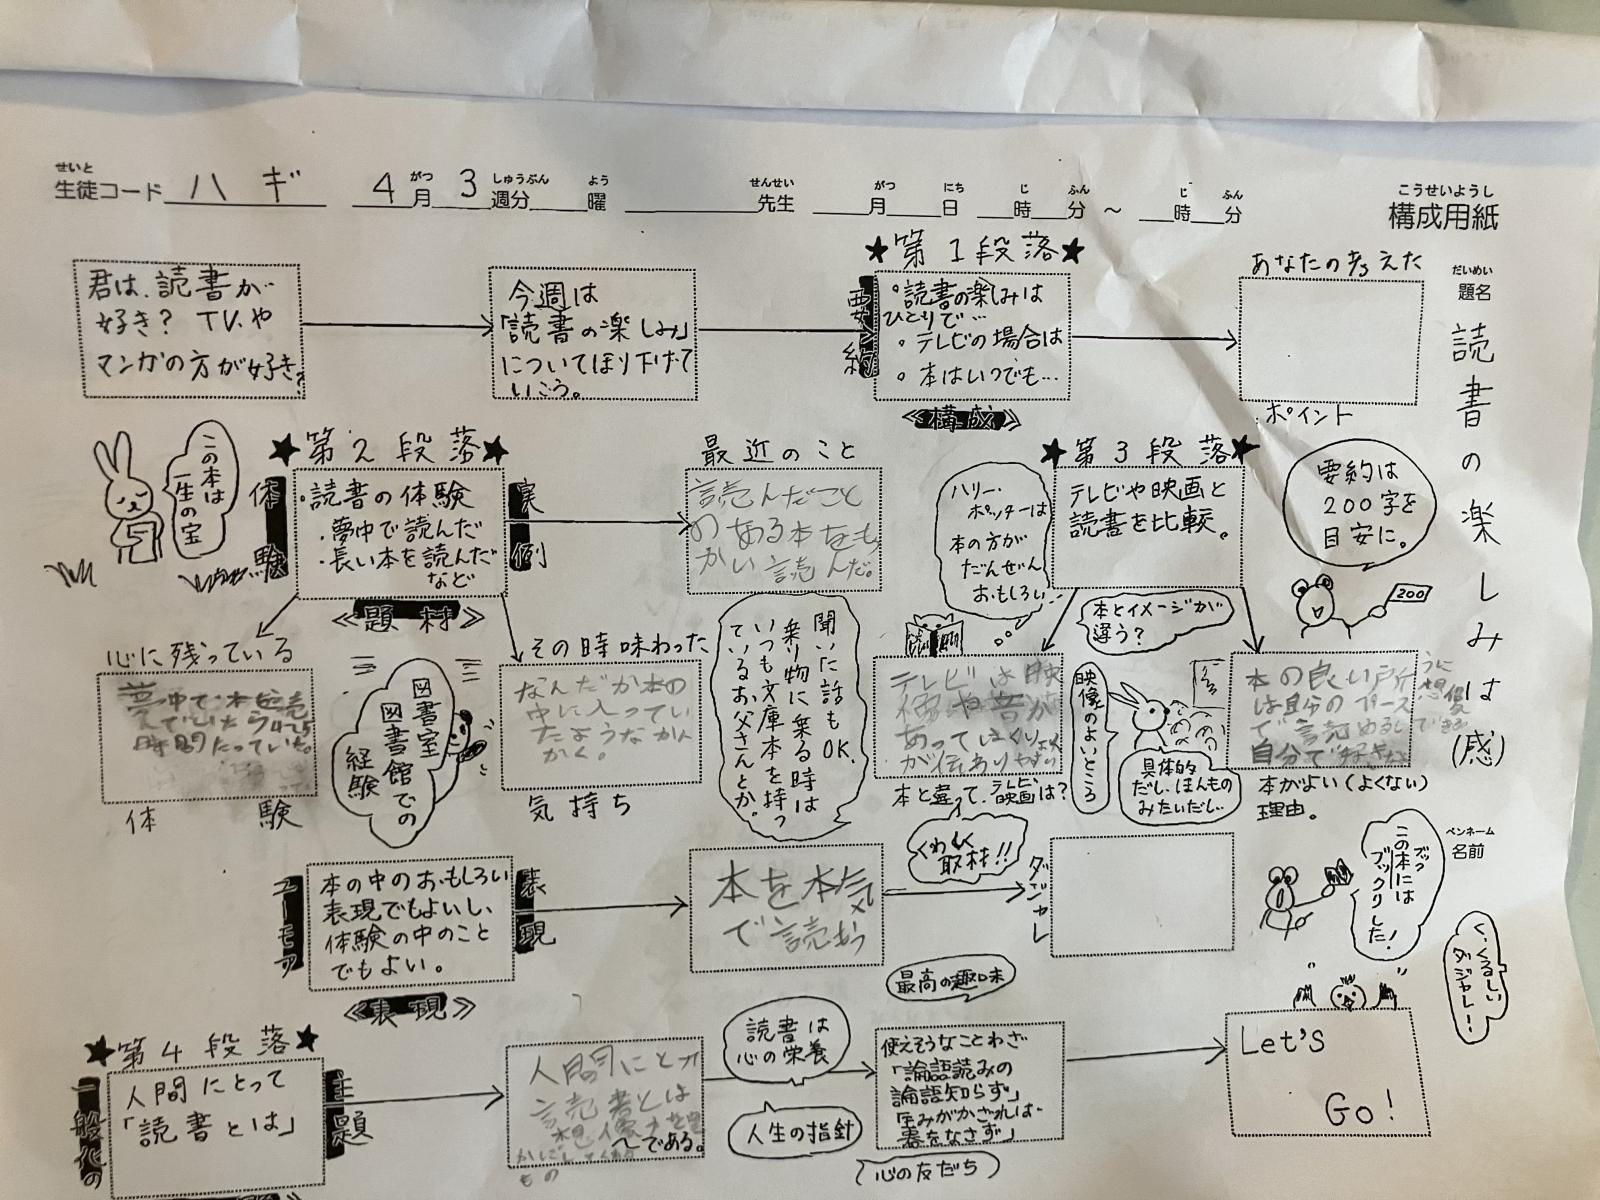 せいと
生徒コード ハギ
がつ しゅうぶん よう
4月3週分 曜
せんせい
先生
がつ にち じ ふん じ ふん
月 日 時 分 ～ 時 分
こうせいようし
構成用紙
だいめい
題名
読書の楽しみは(感)
君は、読書が
好き? TVや
マンガの方が好き?
今週は
「読書の楽しみ」
についてほり下げて
いこう。
★第1段落★
要約
・読書の楽しみは
ひとりで…
・テレビの場合は
・本はいつでも…
≪構成≫
あなたの考えた
ポイント
要約は
200字を
目安に。
200
この本は
一生の宝
★第2段落★
体験
・読書の体験
・夢中で読んだ
・長い本を読んだ
など
≪題材≫
実例
最近のこと
読んだこと
のある本をもっ
かい読んだ。
ハリー・
ポッターは
本の方が
だんぜん
おもしろい
★第3段落★
テレビや映画と
読書を比較。
本とイメージが
違う?
心に残っている
夢中で本を読
時間たっていた。
体験
図書室
図書館での
経験
その時味わった
なんだか本の
中に入ってい
たようなかん
かく。
気持ち
聞いた話もOK。
乗り物に乗る時は
いつも文庫本を持っ
ているお父さんとか。
テレビは映
像や音が
あって
本と違って、テレビ映画は?
映像のよいところ
具体的
だし、ほんもの
みたいだし、
本の良い所
は自分のペース
で読める
自分で好きな
本がよい(よくない)
理由。
ユーモア
本の中のおもしろい
表現でもよいし、
体験の中のこと
でもよい。
≪表現≫
表現
本を本気
で読もう
くわしく
取材!!
ダジャレ
ブック
この本には
ブックリした!
ペンネーム
名前
く、くるしい
ダジャレー!
★第4段落★
一般化の
人間にとって
「読書とは」
主題
人間にとって
読書とは
～である。
もの
読書は
心の栄養
人生の指針
最高の趣味
使えそうなことわざ
「論語読みの
論語知らず」
「玉みがかざれば
器をなさず」
心の友だち
Let's
Go!